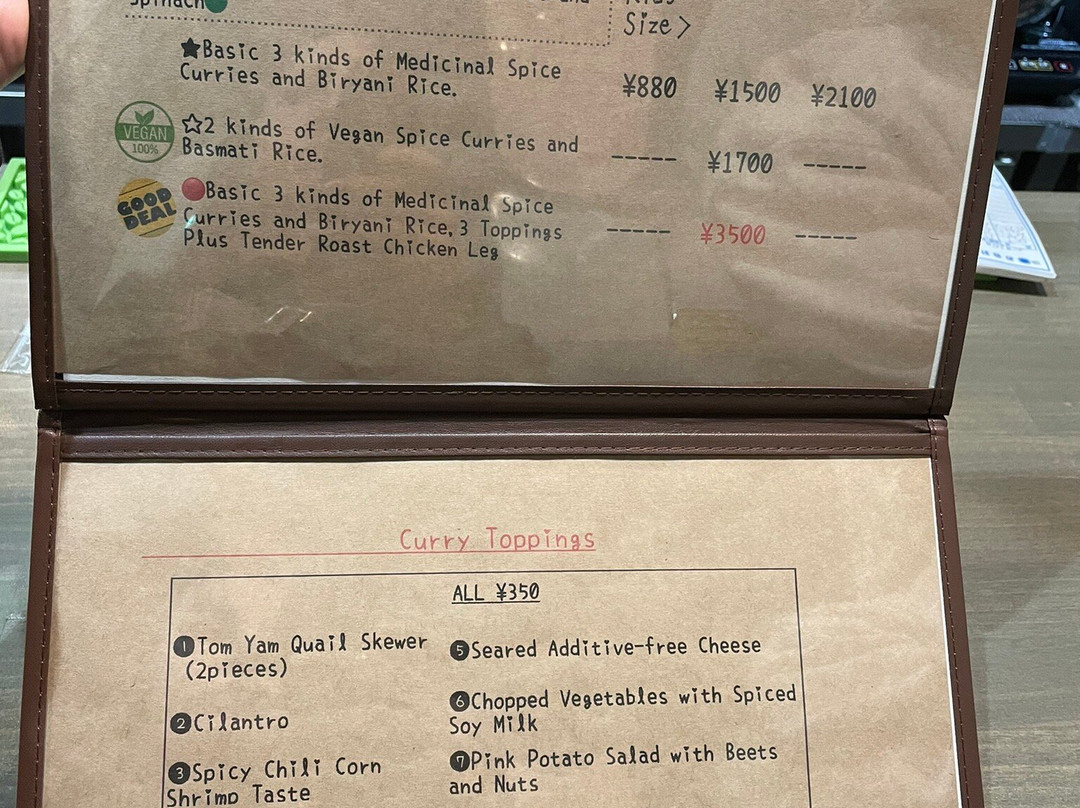 Spinach
Size>
★Basic 3 kinds of Medicinal Spice
Curries and Biryani Rice.
¥880 ¥1500 ¥2100
VEGAN
100%
☆2 kinds of Vegan Spice Curries and
Basmati Rice.
----- ¥1700 -----
GOOD
DEAL
Basic 3 kinds of Medicinal Spice
Curries and Biryani Rice, 3 Toppings
Plus Tender Roast Chicken Leg
----- ¥3500 -----
Curry Toppings
ALL ¥350
❶Tom Yam Quail Skewer
(2pieces)
❷Cilantro
❸Spicy Chili Corn
Shrimp Taste
❺Seared Additive-free Cheese
❻Chopped Vegetables with Spiced
Soy Milk
❼Pink Potato Salad with Beets
and Nuts